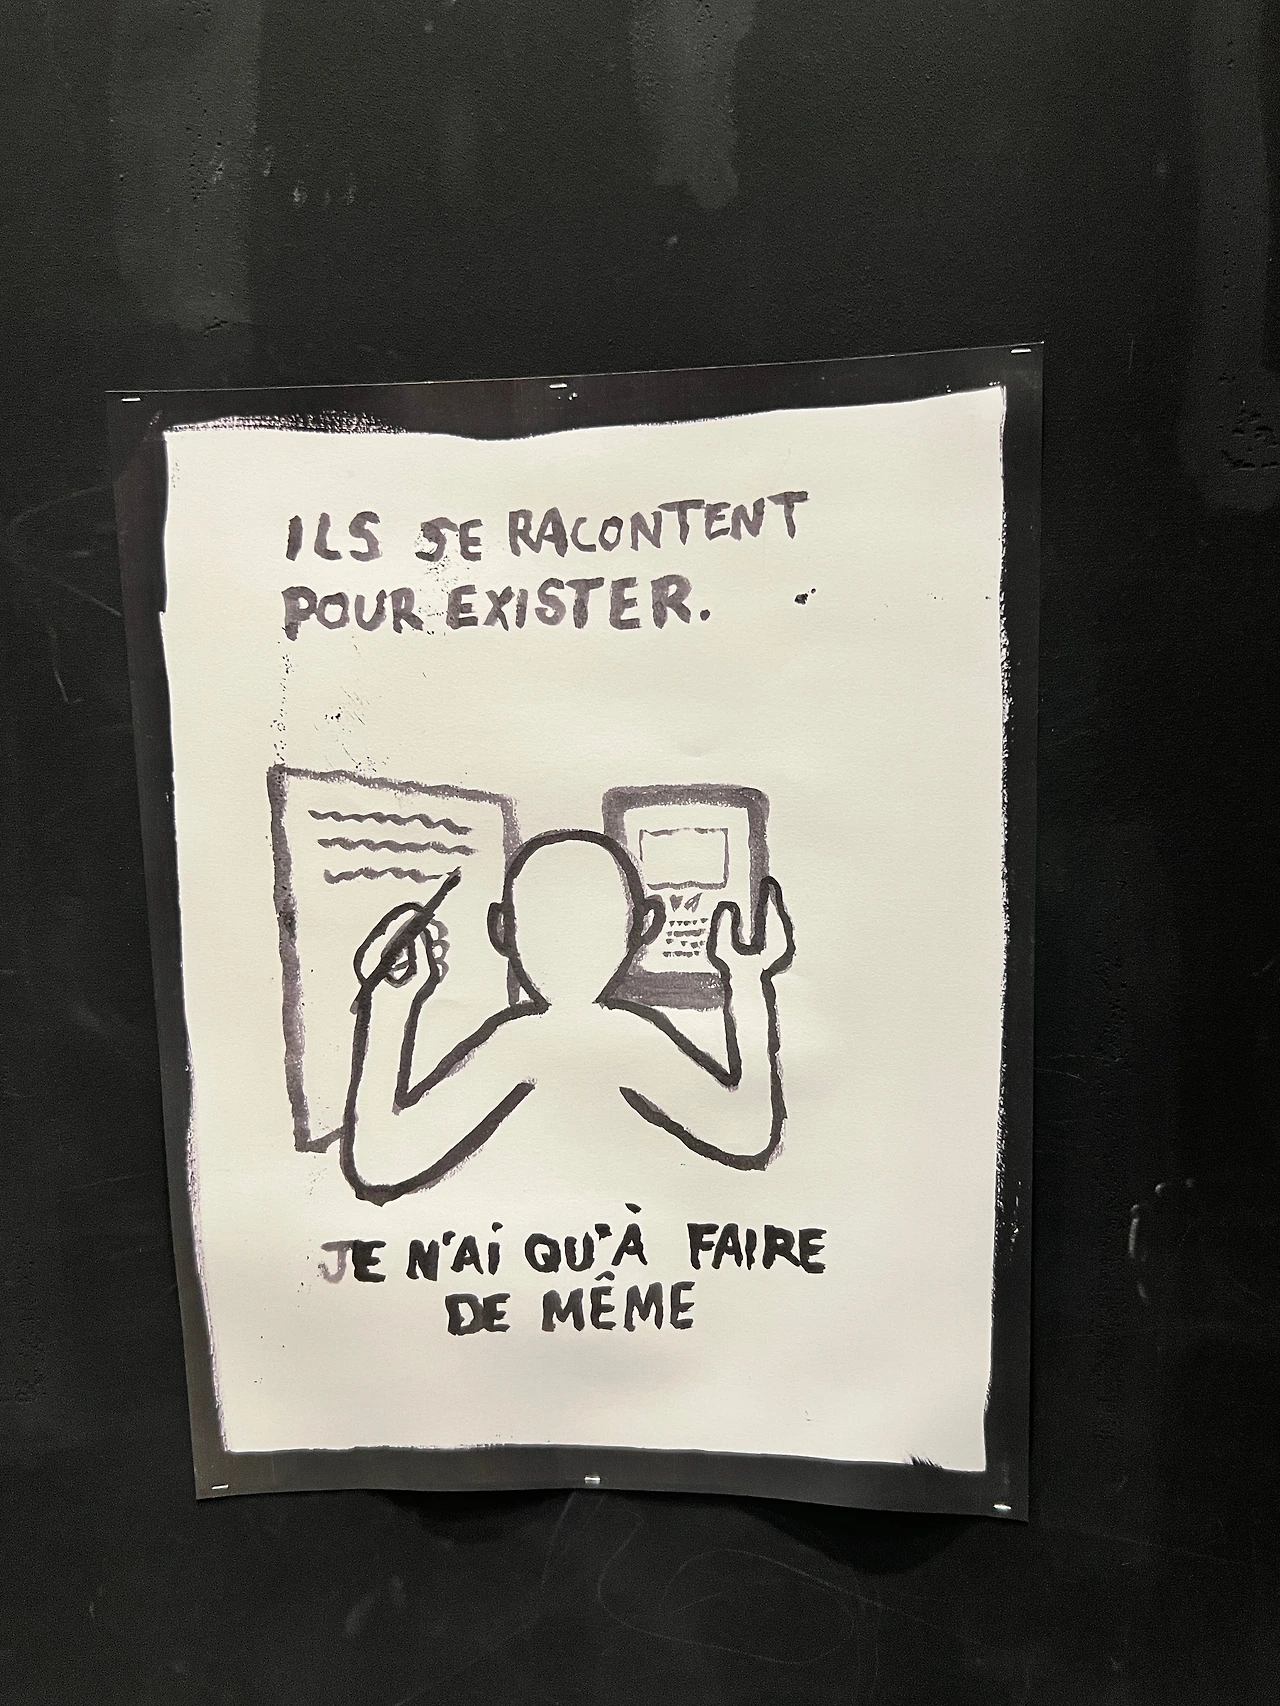 ILS SE RACONTENT
POUR EXISTER.
JE N'AI QU'À FAIRE
DE MÊME